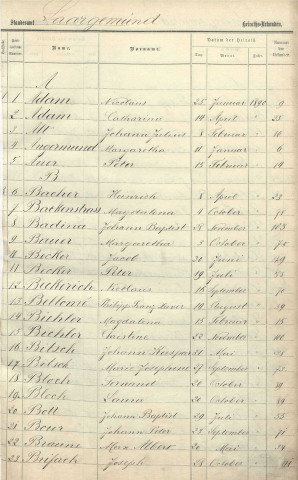 Standesamt Saargemünd Heiraths-Urkunden.
Name. Vorname. Datum der Heirath
Tag Monat Jahr
A
1 Adam Nicolaus 25 Januar 1890 9
2 Adam Catharina 19 April " 28
3 Alt Johann Julius 8 Februar " 10
4 Angermund Margaretha 11 Januar " 6
5 Auer Peter 15 Februar " 19
B
6 Bacher Heinrich 8 April " 23
7 Backenstrass Magdalena 4 October " 78
8 Badina Johann Baptist November " 103
9 Bauer Margaretha 3 October " 75
10 Becker Jacob 20 Juni " 49
11 Becker Peter 19 Juli " 55
12 Beckerich Nicolaus 16 September " 70
13 Bellomé Philipp Franz Xaver 19 August "
14 Biehler Magdalena 15 Februar " 18
15 Bechler Caroline 22 November " 100
16 Bitsch Johann Kaspar 31 Mai " 38
17 Bitsch Marie Josephine 27 September " 73
18 Bloch Fernand 20 October " 89
19 Bloch Laura 20 October "
20 Bott Johann Baptist 29 Juli " 55
21 Bour Johann Peter 22 September " 71
22 Braune Max Albert 20 Mai " 34
23 Joseph 28 October "